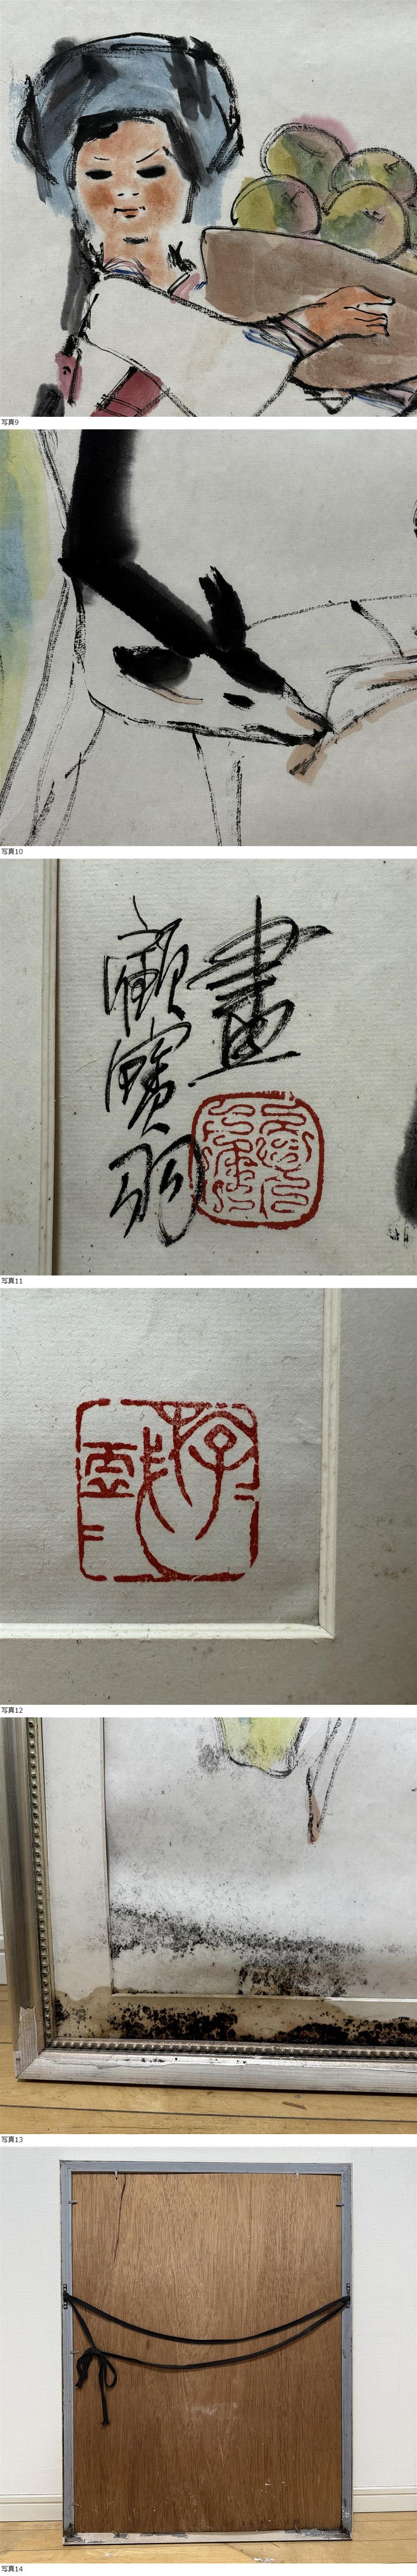 写真9
写真10
畫
顧寶羽
写真11
写真12
写真13
写真14